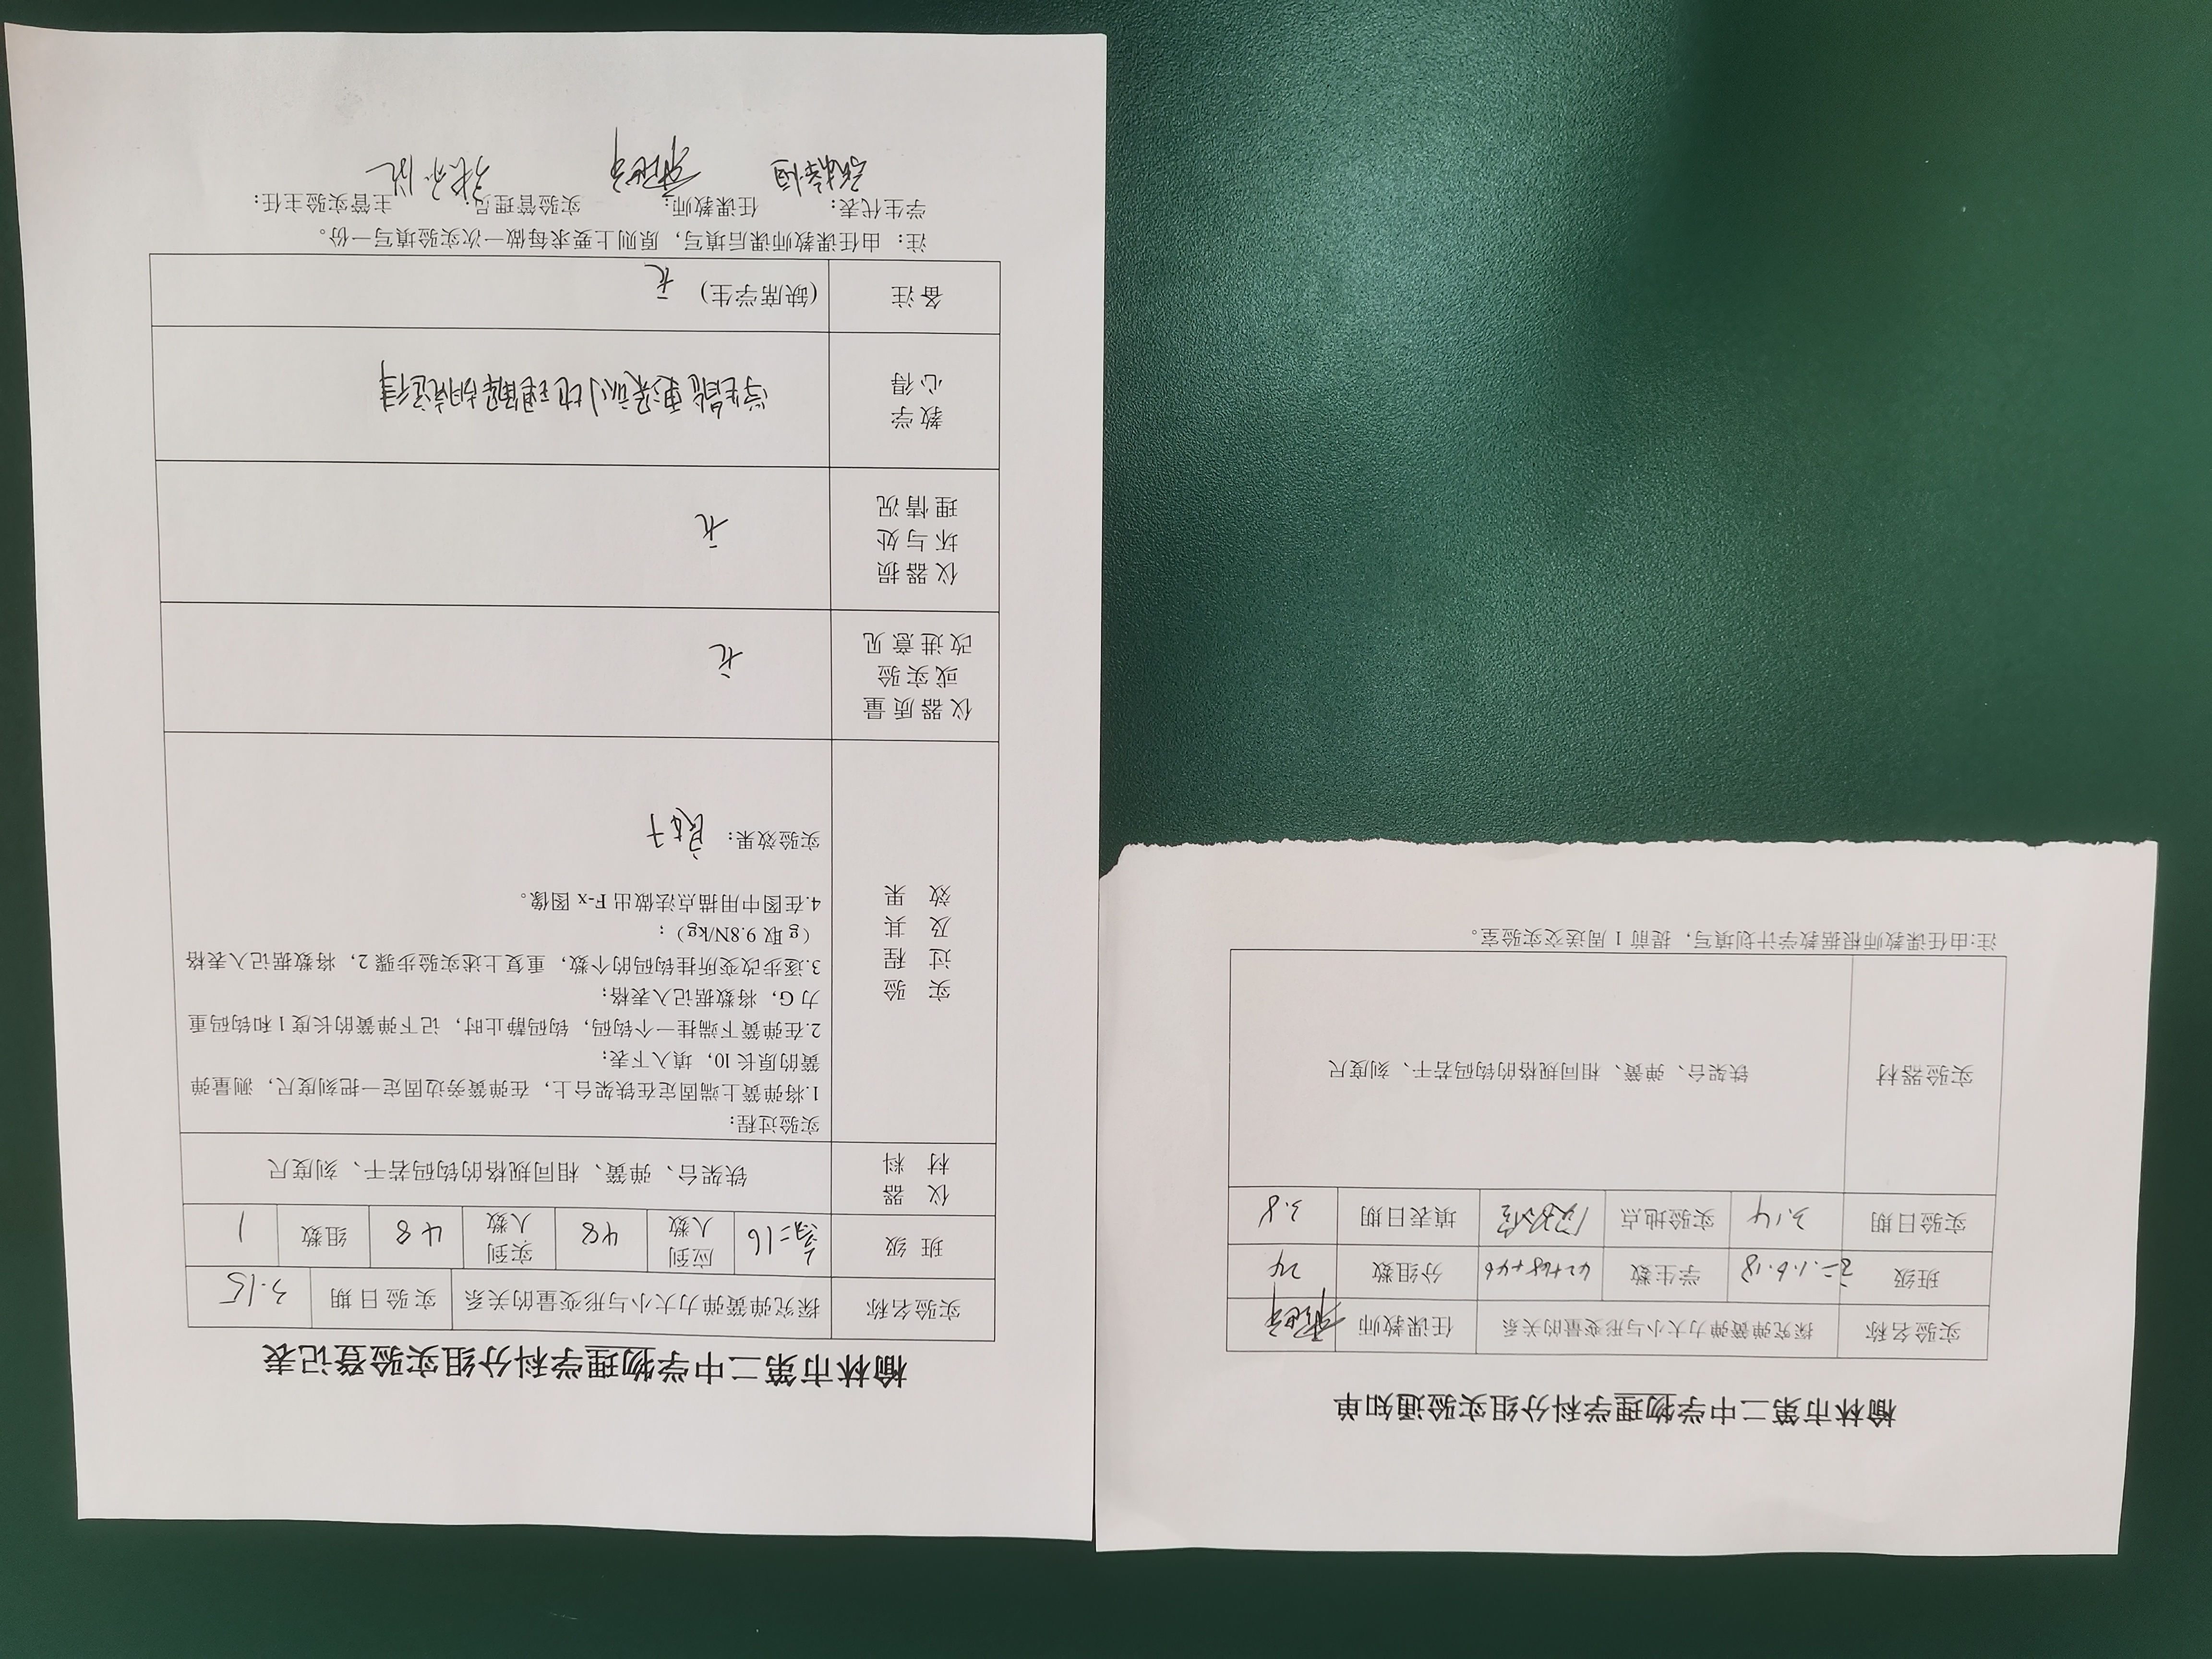 榆林市第二中学物理学科分组实验通知单
实验名称 探究弹簧弹力大小与形变量的关系 任课教师
班级 高二.1.6.18 学生数 42+48+46 分组数 24
实验日期 3.14 实验地点 填表日期 3.8
实验器材 铁架台、弹簧、相同规格的钩码若干、刻度尺
注:由任课教师根据教学计划填写，提前 1 周送交实验室。
榆林市第二中学物理学科分组实验登记表
实验名称 探究弹簧弹力大小与形变量的关系 实验日期 3.15
班 级 高二16 应到人数 48 实到人数 48 组数 1
仪 器 材 料 铁架台、弹簧、相同规格的钩码若干、刻度尺
实 验 过 程 及 其 效 果
实验过程：
1.将弹簧上端固定在铁架台上，在弹簧旁边固定一把刻度尺，测量弹
簧的原长 10，填入下表；
2.在弹簧下端挂一个钩码，钩码静止时，记下弹簧的长度 l 和钩码重
力 G，将数据记入表格；
3.逐步改变所挂钩码的个数，重复上述实验步骤 2，将数据记入表格
（g 取 9.8N/kg）；
4.在图中用描点法做出 F-x 图像。
实验效果： 良好
仪器质量或实验改进意见 无
仪器损坏与处理情况 无
教学心得 学生能更深刻地理解胡克定律
备注 (缺席学生) 无
注：由任课教师课后填写，原则上要求每做一次实验填写一份。
学生代表： 任课教师： 实验管理员： 主管实验主任：